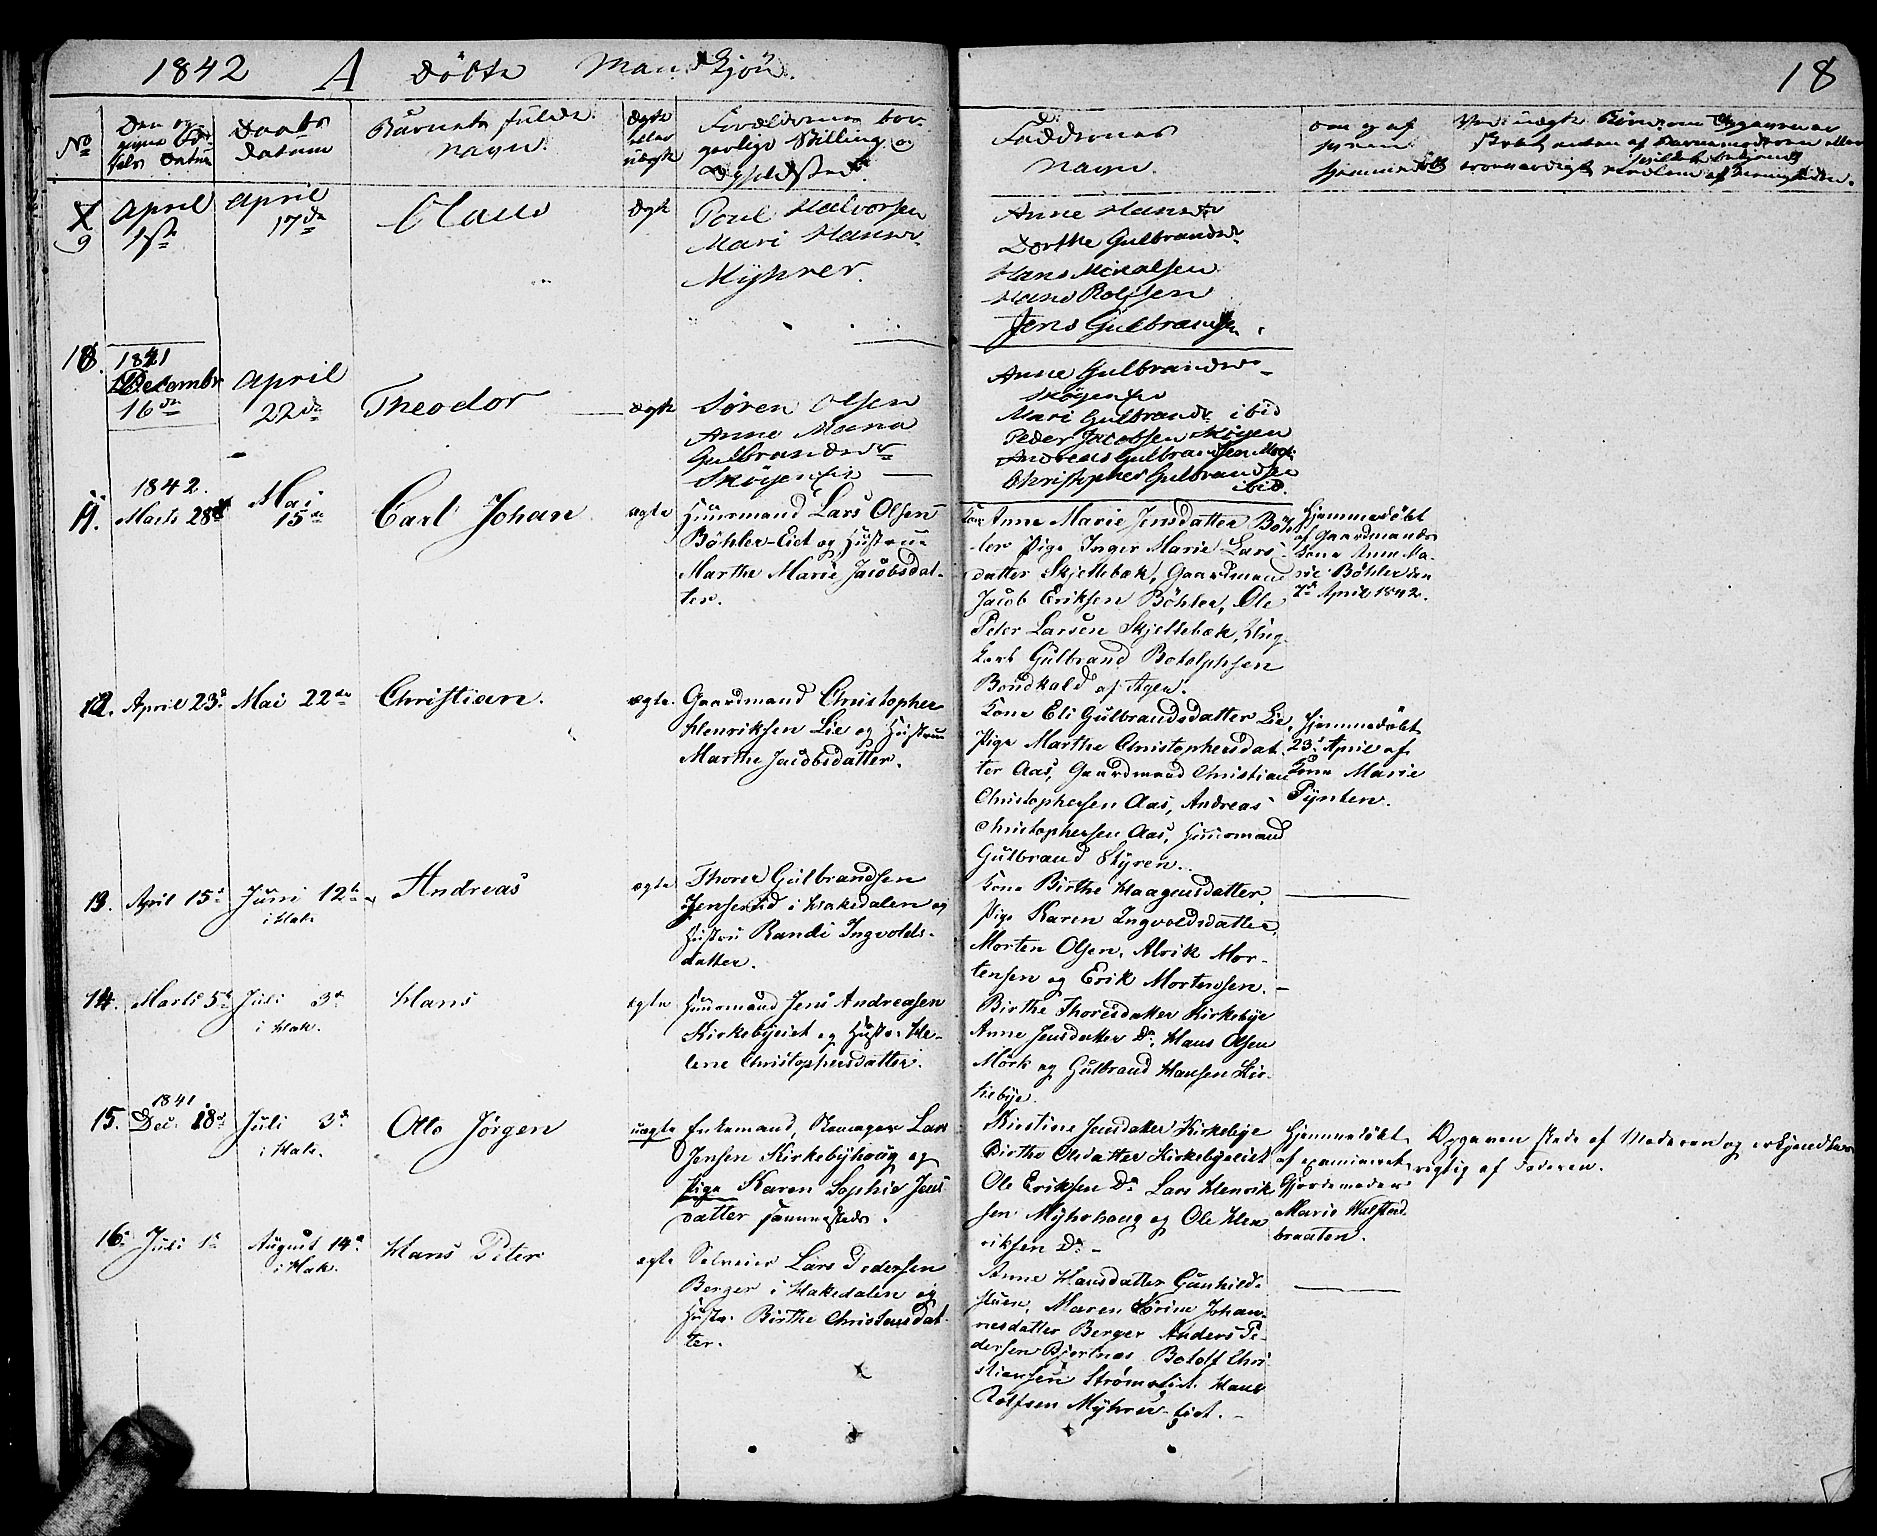 1842 A Døbte Mandkjön.
18
No
Den op-
givne Fød-
sels Datum
Daabs
Datum
Barnets fulde
Navn.
Ægte
eller
uægte
Forældrenes bor-
gerlige Stilling og
Opholdsted
Faddernes
Navn.
om og af
hvem
hjemmedøbt
9
April
1ste
April
17de
Claus
Ægte
Poul Halvorsen
Mari Hansdr
Myhrer.
Anne Hansdr
Dorthe Gulbrandsdr
Hans Mikalsen
Hans Rolfsen
Jens Gulbrandsen
10.
1841
Decembr
16de
April
22de
Theodor
ægte
Søren Olsen
Anne Maria
Gulbrandsdr
Skøyen
Anne Gulbrandsdr
Skøyen
Mari Gulbrandsdr ibid
Peder Jacobsen Skøyen
Andreas Gulbrandsen
Christopher Gulbrandsen
ibid.
11.
1842.
Marts 28de
Mai
15de
Carl Johan
ægte
Huusmand Lars Olsen
Böhler-Eiet og Hustrue
Marthe Marie Jacobsdat-
ter.
Kone Anne Marie Jensdatter Böh-
ler Pige Inger Marie Lars-
datter Skjellebæk, Gaardmand
Jacob Eriksen Böhler, Ole
Peter Larsen Skjellebæk, Ung-
karl Gulbrand Botolphsen
Bondkald af Ager.
Hjemmedøbt
af Gaardmands
kone Anne Ma-
rie Böhler den
7de April 1842.
12. April 23d Mai 22de Christian. ægte.
Gaardmand Christopher
Henriksen Lie og Hustrue
Marthe Jacobsdatter.
Kone Eli Gulbrandsdatter Lie,
Pige Marthe Christophersdat-
ter Aas, Gaardmand Christian
Christophersen Aas, Andreas
Christophersen Aas, Huusmand
Gulbrand Styren.
Hjemmedøbt
23d April af
Kone Marie
Tynten.
13. April 15d Juni 12te
i Hak.
Andreas
ægte
Thorer Gulbrandsen
Jenseeid i Hakedalen og
Hustru Randi Ingvolds-
datter.
Kone Birthe Haagensdatter,
Pige Karen Ingvoldsdatter,
Morten Olsen, Alrik Mor-
tensen og Erik Mortensen.
14. Marts 5d Juli 3d
i Hak.
Hans
ægte
Huusmand Jens Andreasen
Kirkebyeiet og Hustr. He-
lene Christophersdatter.
Birthe Thoresdatter Kirkebye
Anne Jensdatter Do, Hans Olsen
Mörk og Gulbrand Hansen Kir-
kebye.
15.
1841
Dec. 18d Juli 3d
i Hak.
Otto Jørgen
uægte
Enkemand, Skomager Lars
Jensen Kirkebyhaug og
Pige Karen Sophie Jens
datter sammesteds.
Kirstine Jensdatter Kirkebye
Birthe Olsdatter Kirkebyeiet
Ole Eriksen Do Lars Henrik
sen Myhrhaug og Ole Hen
riksen Do
Hjemmedøbt
af examineret
Gjordemoder
Marie Halstad
braaten.
Opgaven skede af Moderen og erkjendtes
rigtig af Faderen.
16. Juli 1d August 14d
i Hak.
Hans Peter
ægte
Selveier Lars Pedersen
Berger i Hakedalen og
Hustr. Birthe Christensdat-
ter.
Anne Hansdatter Gunhild-
stuen, Maren Karine Johan-
nesdatter Berger Anders Pe-
dersen Bjertnæs Botolf Chri-
stiansen Strømseiet Hans
Rolfsen Myhrer-Eiet.